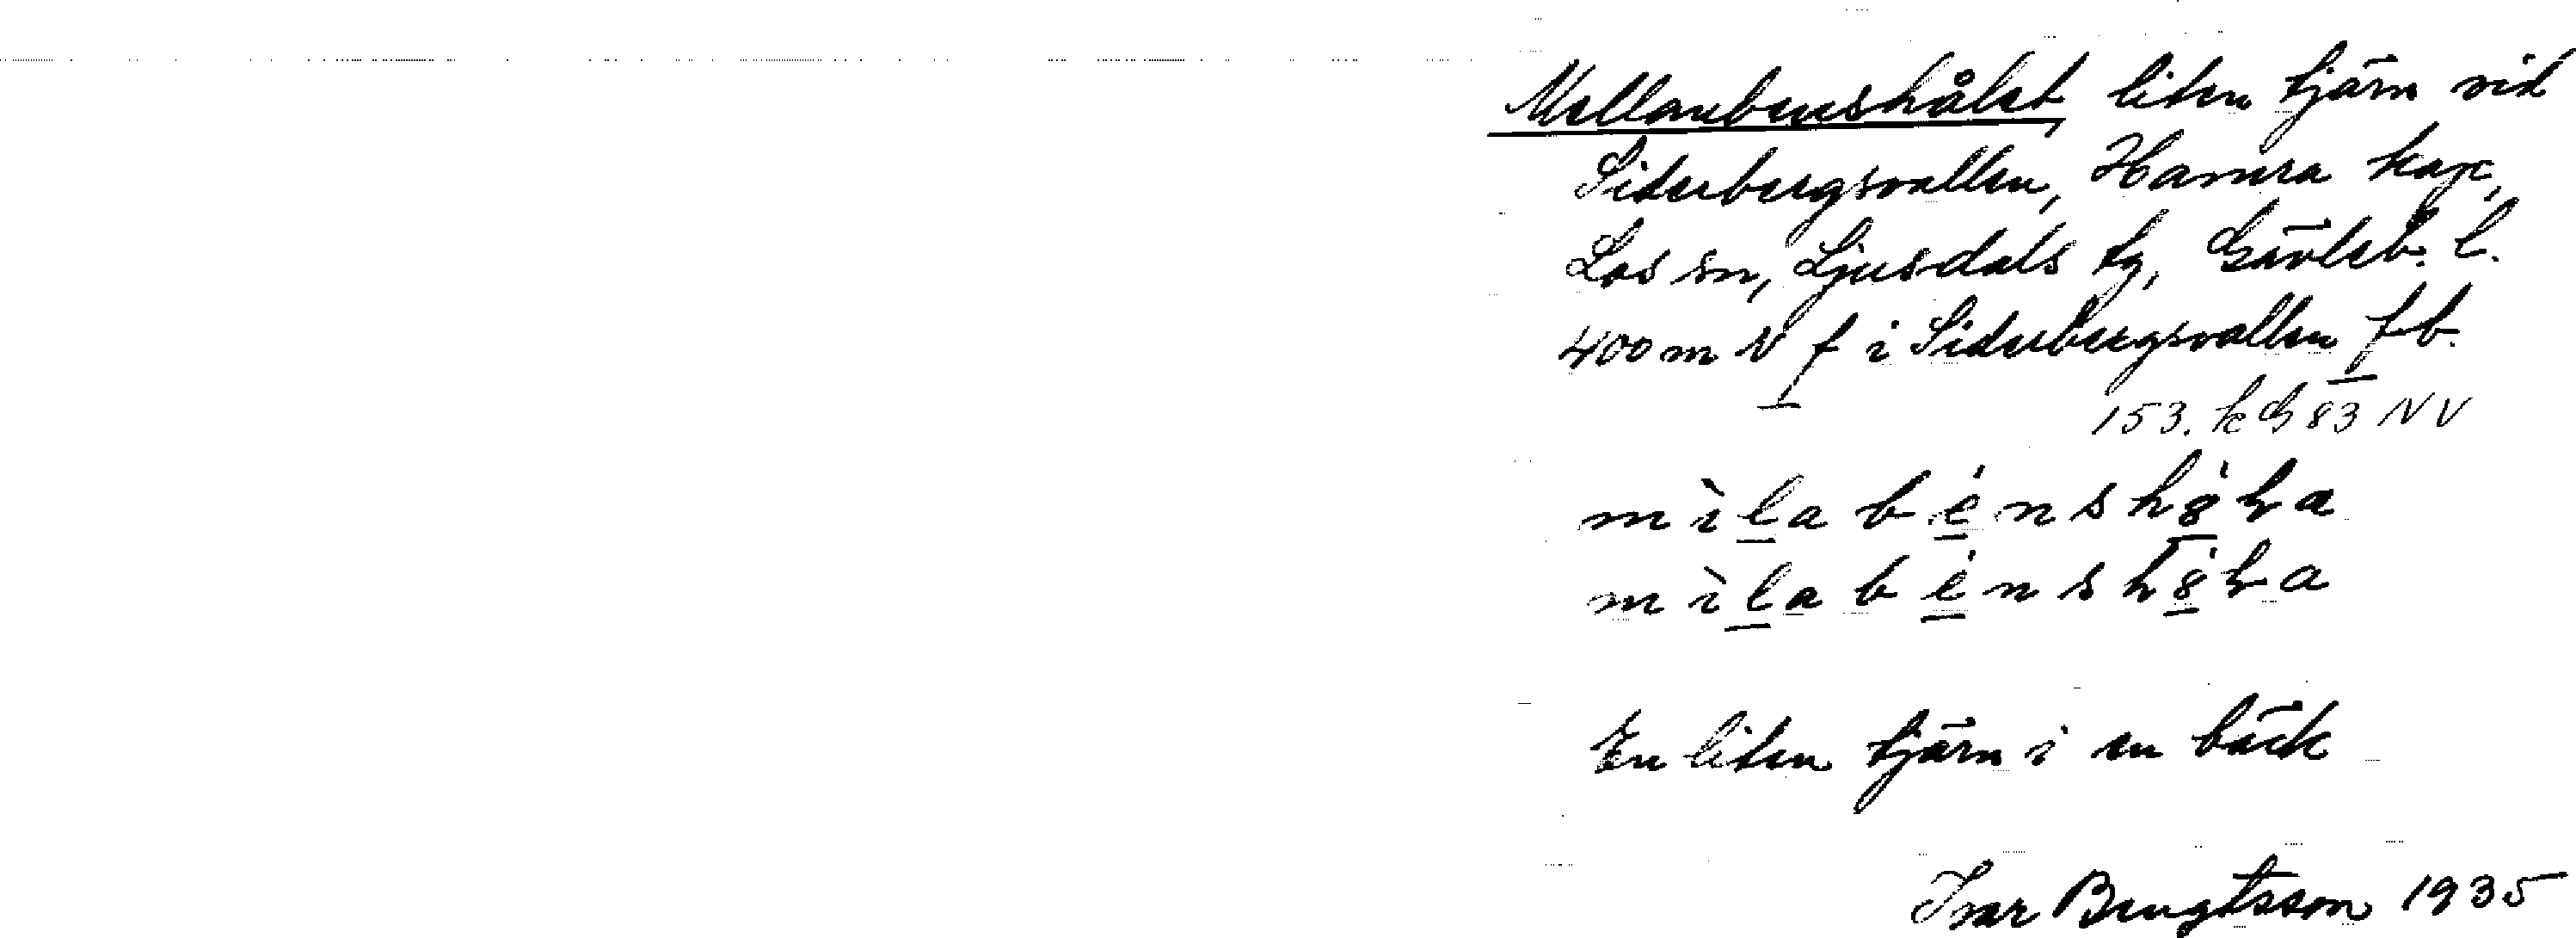 Mellanbenshålet, liten tjärn vid
Siderbergsvallen, Hamra kap,
Los sn, Ljusdals tg, Gävleb. l.
400 m V f i Siderbergsvallen fb.
153. kG 83 NV
mìlabénshòla
mìlabénshòla
En liten tjärn i en bäck
Ivar Bengtsson 1935